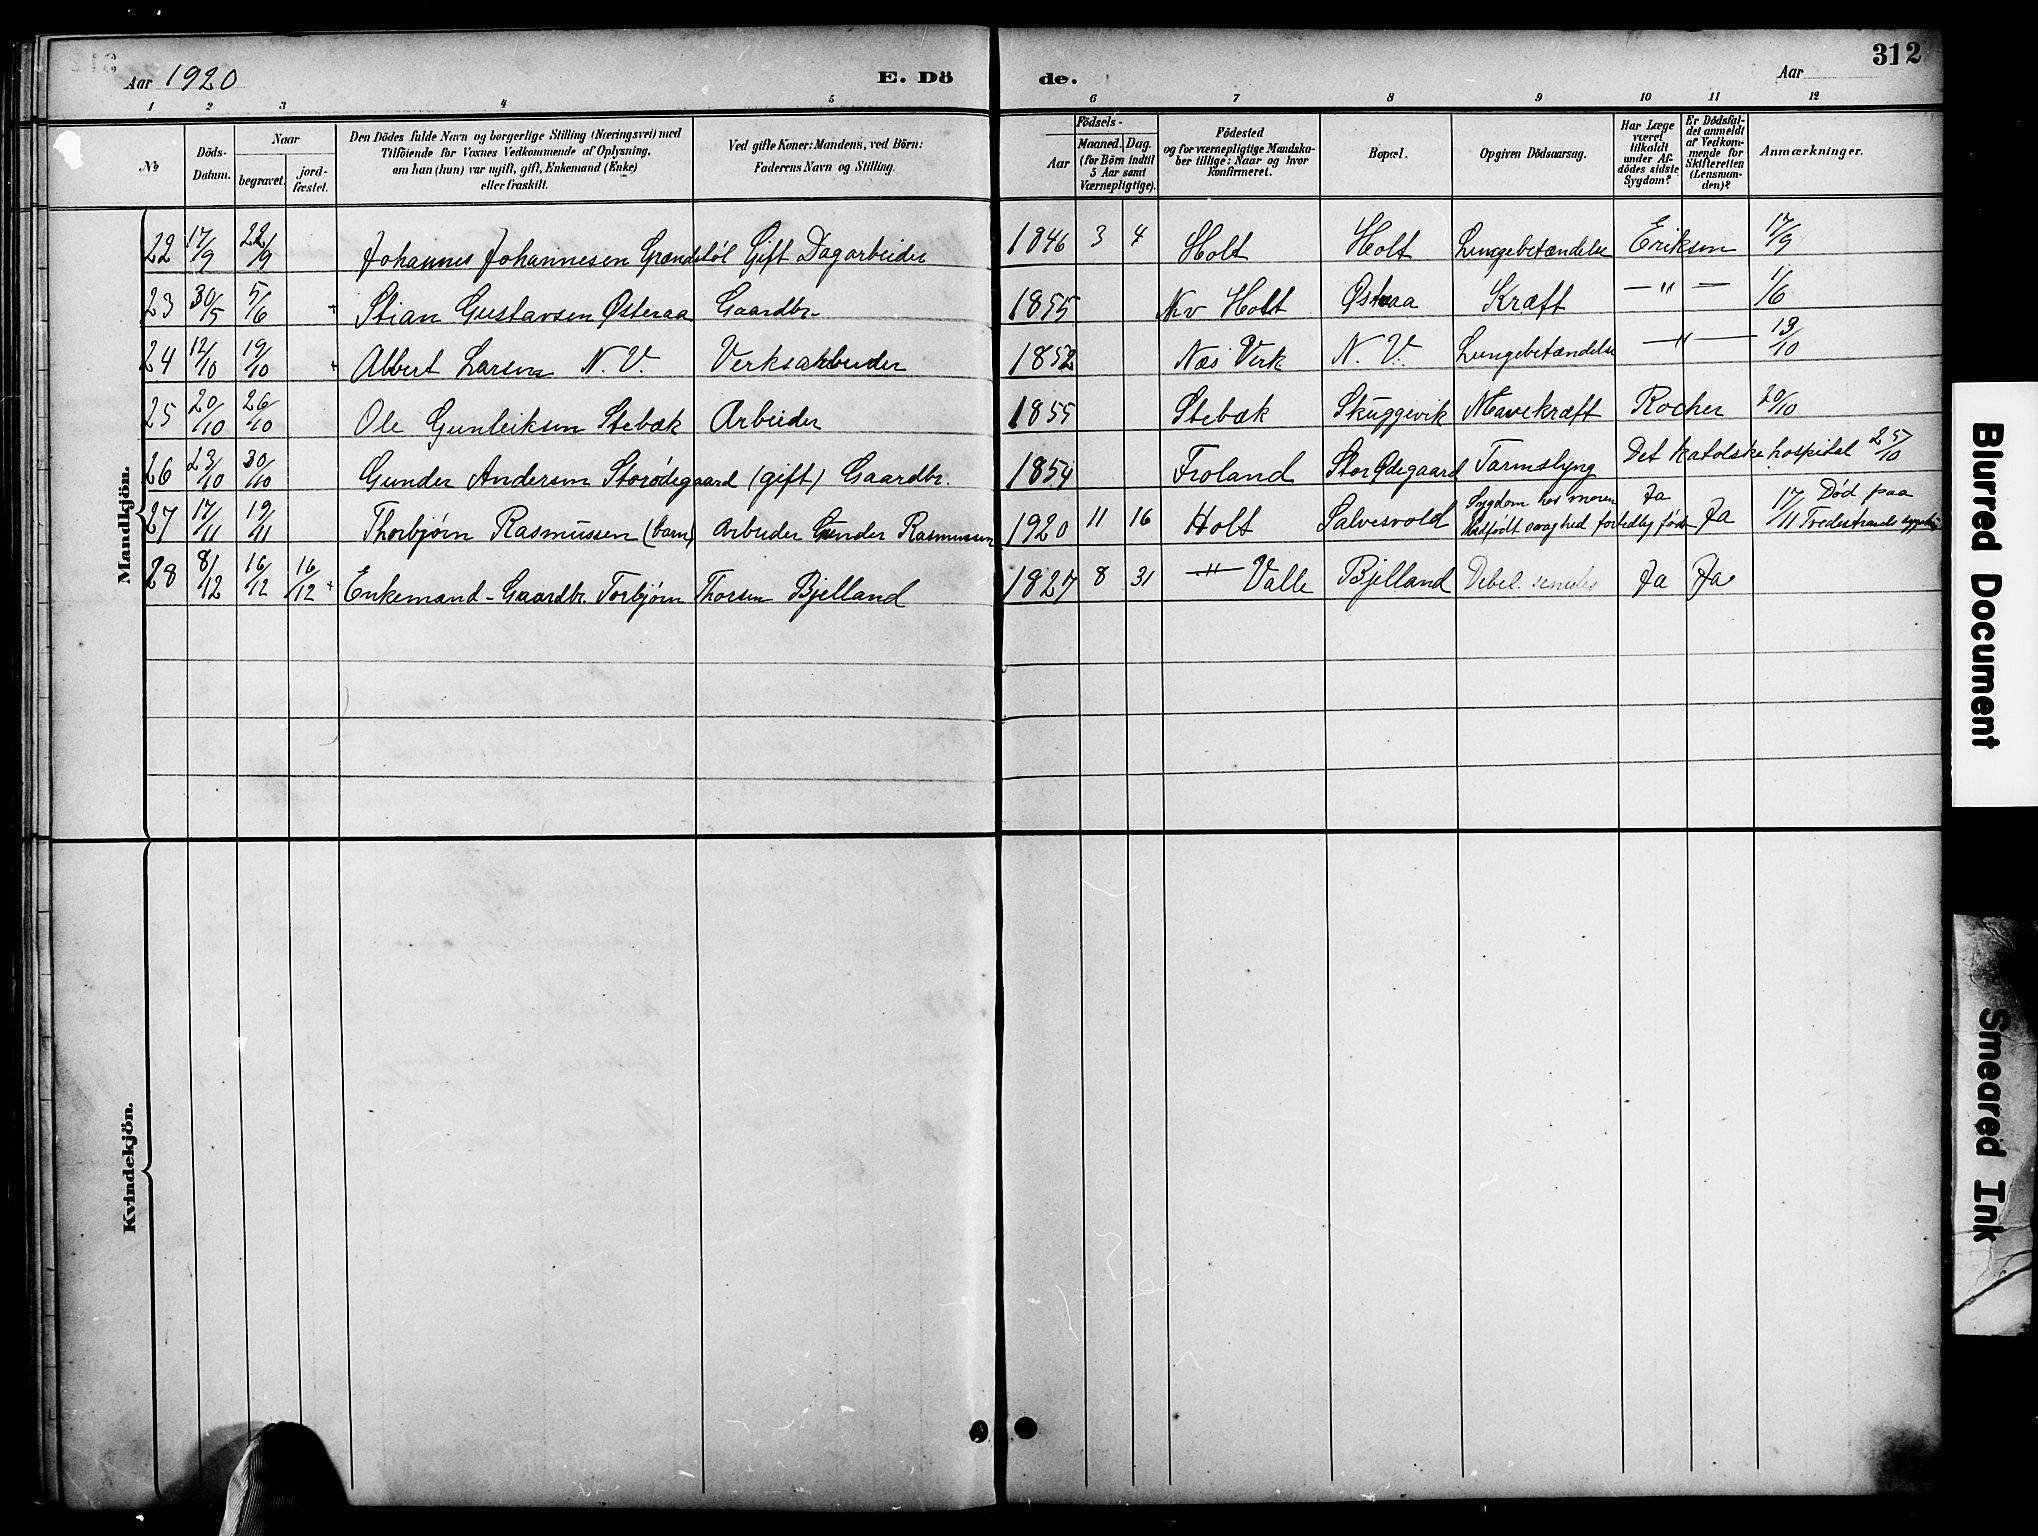 312
Aar 1920 E. Dö de. Aar
1 2 3 4 5 6 7 8 9 10 11 12
No
Döds-Datum.
Naar
begravet.
jord-fæstet.
Den Dödes fulde Navn og borgerlige Stilling (Næringsvei) med
Tilföiende for Voxnes Vedkommende af Oplysning,
om han (hun) var ugift, gift, Enkemand (Enke)
eller fraskilt.
Ved gifte Koner: Mandens, ved Börn:
Faderens Navn og Stilling.
Födsels-
Aar
Maaned. Dag.
(for Börn indtil
5 Aar samt
Værnepligtige).
Födested
og for værnepligtige Mandska-
ber tillige: Naar og hvor
Konfirmeret.
Bopæl.
Opgiven Dödsaarsag.
Har Læge
været
tilkaldt
under Af-
dödes sidste
Sygdom?
Er Dödsfal-
det anmeldt
af Vedkom-
mende for
Skifteretten
(Lensman-
den)?
Anmærkninger.
Mandkjön.
22 17/9 22/9 Johannes Johannesen Grændstøl Gift Dagarbeider 1846 3 4 Holt Holt Lungebetændelse Eriksen 17/9
23 30/5 5/6 + Stian Gustavsen Østeraa Gaardbr. 1855 Holt Østeraa Kræft — " — 1/6
24 12/10 19/10 + Albert Larsen N. V. Verksarbeider 1852 Næs Verk N. V. Lungebetændelse — " — 13/10
25 20/10 26/10 Ole Gunleiksen Stebæk Arbeider 1855 Stebæk Skuggevik Mavekræft Rocher 20/10
26 23/10 30/10 Gunder Andersen Storødegaard (gift) Gaardbr. 1854 Froland Stor Ødegaard Tarmslyng Det katolske hospital 25/10
27 17/11 19/11 Thorbjørn Rasmussen (barn) Arbeider Gunder Rasmussen 1920 11 16 Holt Salvesvold Sygdom hos moren Medfødt svaghed for tidlig født Ja Ja 17/11 Død paa Tvedestrands
28 8/12 16/12 16/12 + Enkemand - Gaardbr. Torbjørn Thorsen Bjelland 1827 8 31 — " — Valle Bjelland Debel. senules Ja Ja
Kvindekjön.
Blurred Document
Smeared Ink